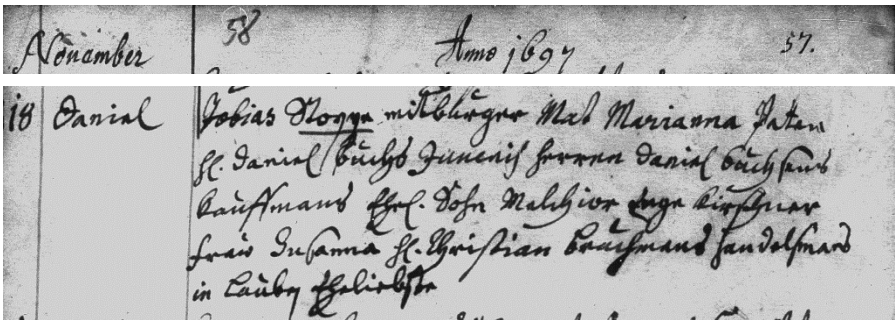 November 58 Anno 1697 57.
18 Daniel Tobias Stoppe mitbürger Mat Marianna Paten
H. Daniel Buchs Herren Daniel Buchsens
Kauffmans Ehel. Sohn Melchior Kirschner
Fraw Susanna H. Christian Bruchmans Handelsmans
in Lauben Eheliebste